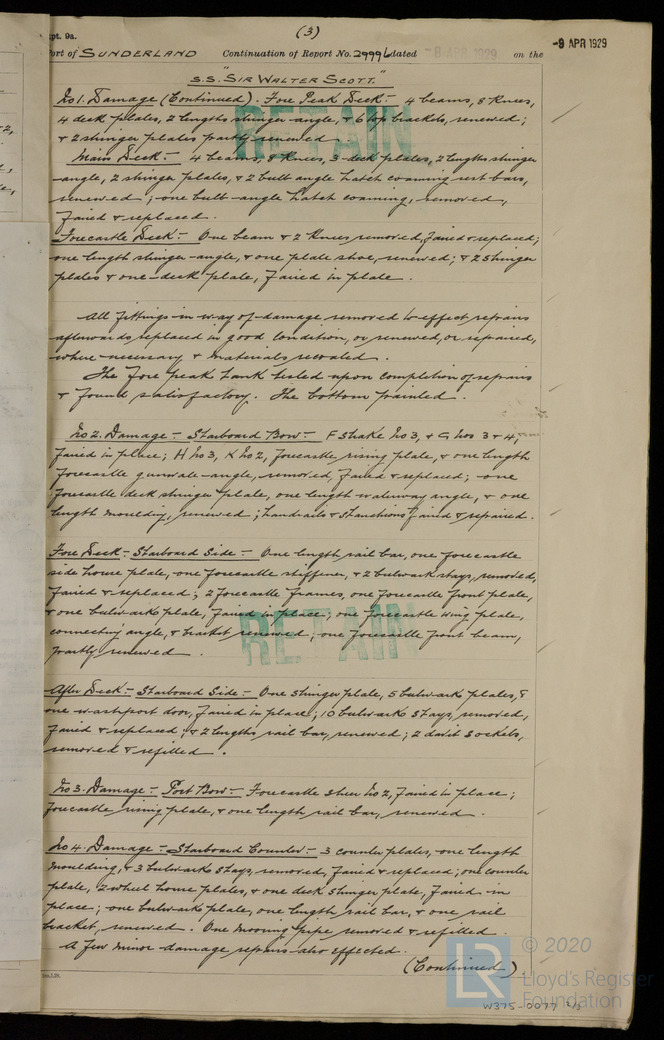 (3)
pt. 9a.
ort of SUNDERLAND Continuation of Report No. 29996 dated -8 APR 1929 on the -9 APR 1929
S.S. "SIR WALTER SCOTT."
No 1. Damage (Continued). Fore Peak Deck:- 4 beams, 8 Knees,
4 deck plates, 2 lengths stringer angle, & 6 top brackets, renewed;
& 2 stringer plates partly renewed
RETAIN
Main Deck:- 4 beams, 8 Knees, 3 deck plates, 2 lengths stringer
angle, 2 stringer plates, & 2 bulb angle hatch coaming rest bars,
renewed; one bulb angle hatch coaming, removed,
faired & replaced.
Forecastle Deck:- One beam & 2 Knees removed, faired & replaced;
one length stringer angle, & one plate shoe, renewed; & 2 stringer
plates & one deck plate, faired in place.
All fittings in way of damage removed to effect repairs
afterwards replaced in good condition, or renewed, or repaired,
where necessary & materials recoated.
The fore peak tank tested upon completion of repairs
& found satisfactory. The bottom painted.
No 2. Damage:- Starboard Bow:- F Strake No 3, & G Nos 3 & 4,
faired in place; H No 3, K No 2, forecastle rising plate, & one length
forecastle gunwale angle, removed, faired & replaced; one
forecastle deck stringer plate, one length waterway angle, & one
length moulding, renewed; handrails & stanchions faired & repaired.
Fore Deck:- Starboard Side:- One length rail bar, one forecastle
side house plate, one forecastle stiffener, & 2 bulwark stays, removed,
faired & replaced; 2 forecastle frames, one forecastle front plate,
& one bulwark plate, faired in place; one forecastle wing plate,
connecting angle, & bracket renewed; one forecastle front beam,
partly renewed.
RETAIN
After Deck:- Starboard Side:- One stringer plate, 5 bulwark plates, &
one washport door, faired in place; 10 bulwark stays, removed,
faired & replaced; & 2 lengths rail bar, renewed; 2 davit sockets,
removed & refitted.
No 3. Damage:- Port Bow:- Forecastle sheer No 2, faired in place;
forecastle rising plate, & one length rail bar, renewed.
No 4. Damage:- Starboard Counter:- 3 counter plates, one length
moulding, & 3 bulwark stays, removed, faired & replaced; one counter
plate, 2 wheel house plates, & one deck stringer plate, faired in
place; one bulwark plate, one length rail bar, & one rail
bracket, renewed. One mooring pipe removed & refitted.
A few minor damage repairs also effected.
(Continued).
LR © 2020
Lloyd's Register
Foundation
W375-0077 2/3